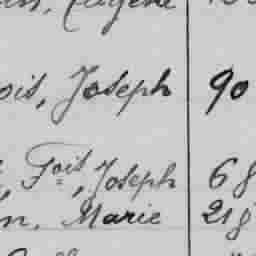 Eugène
ois, Joseph 90
, Fois, Joseph 68
n, Marie 218